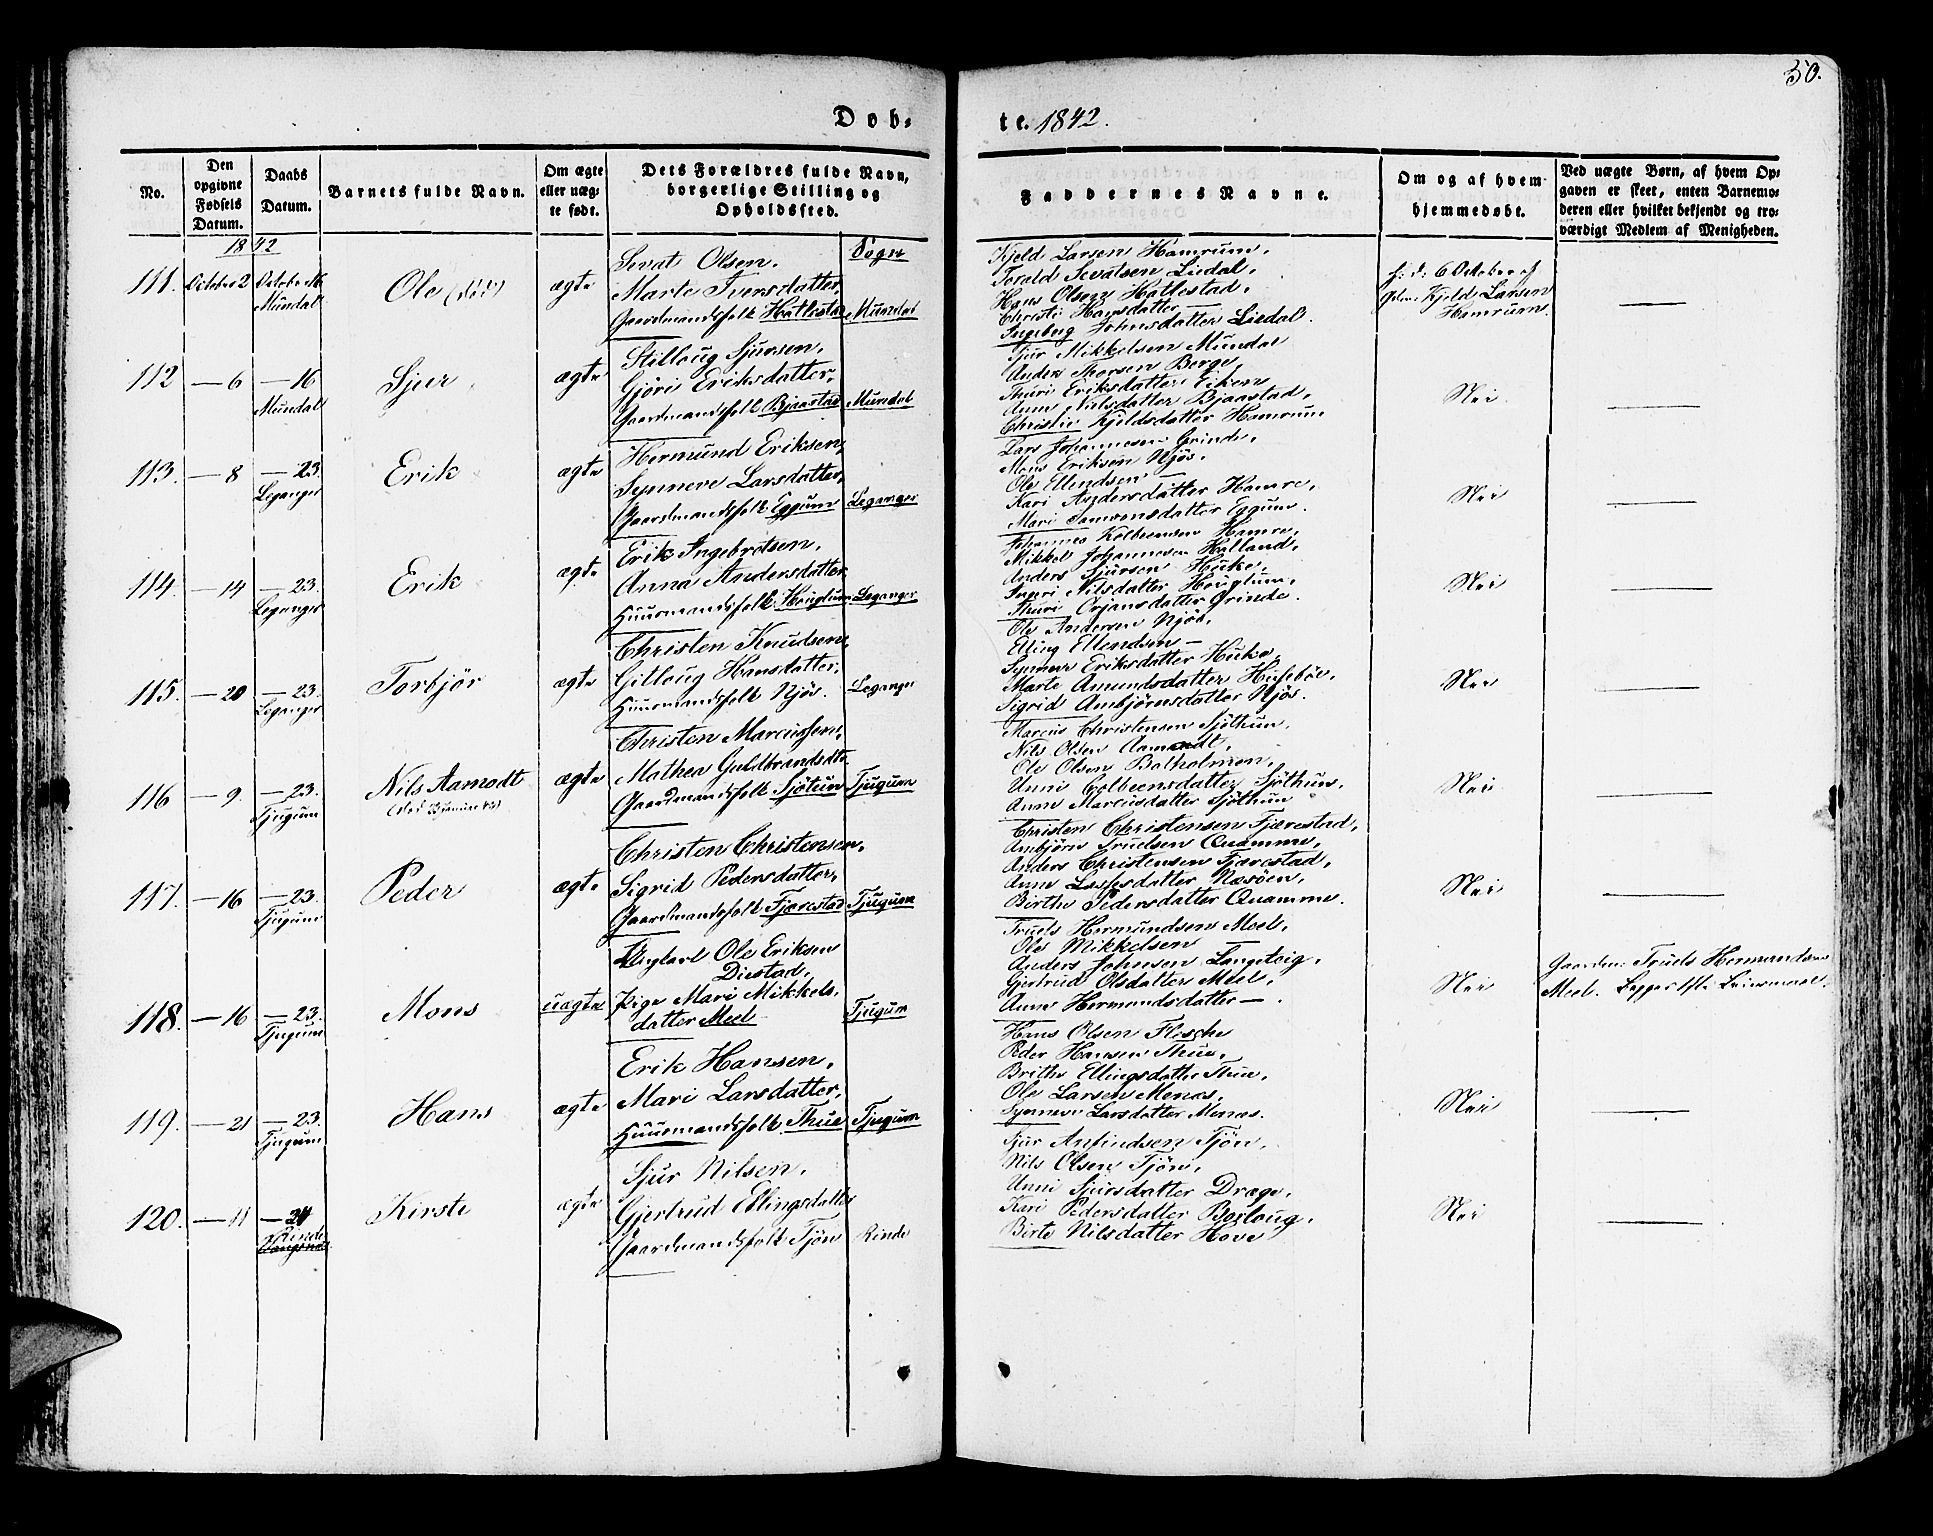 50.
Døb-
te. 1842.
No.
Den opgivne Fødsels Datum.
Daabs Datum.
Barnets fulde Navn.
Om ægte eller uæg-te født.
Dets Forældres fulde Navn, borgerlige Stilling og Opholdssted.
Faddernes Navne.
Om og af hvem hjemmedøbt.
Ved uægte Børn, af hvem Op-gaven er skeet, enten Barnemo-deren eller hvilket bekjendt og tro-værdigt Medlem af Menigheden.
1842
Sogn
111. October 2 October 16 Mundal
Ole (død)
ægte
Sivat Olsen,
Marte Iversdatter,
Gaardmandsfolk Hatlestad
Mundal
Kjeld Larsen Hamrum,
Torald Sivatsen Liedal,
Hans Olsen Hatlestad,
Christi Hansdatter —
Ingeborg Johnsdatter Liedal.
h. d. 6 October af
Gdm. Kjeld Larsen
Hamrum
112 — 6 — 16 Mundal
Sjur
ægte
Stilloug Sjursen,
Gjöri Eriksdatter,
Gaardmandsfolk Bjaastad
Mundal
Sjur Mikkelsen Mundal
Anders Thorsen Berge,
Thuri Eriksdatter Eiken
Anna Nielsdatter Bjaastad,
Christie Kjeldsdatter Hamrum
Nei
113. — 8 — 23. Leganger
Erik
ægte
Hermund Eriksen,
Synneve Larsdatter,
Gaardmandsfolk Eggum
Leganger
Lars Johannesen Grinde,
Mons Eriksen Njös,
Ole Ellendsen —
Kari Andersdatter Hamre,
Mari Samsonsdatter Eggum.
Nei
114. — 14 — 23. Leganger
Erik
ægte
Erik Ingebrotsen,
Anna Andersdatter,
Huusmandsfolk Houglum
Leganger
Johannes Kolbeensen Hamre,
Mikkel Johannesen Halland,
Anders Sjursen Huke,
Ingeri Nilsdatter Houglum,
Thuri Orjansdatter Grinde.
Nei
115. — 20 — 23. Leganger
Torbjör
ægte
Christen Knudsen,
Gitloug Hansdatter,
Huusmandsfolk Njös.
Leganger
Ole Andersen Njös,
Elling Ellendsen —
Synneve Eriksdatter Huke,
Marte Amundsdatter Huseböe,
Sigrid Ambjörnsdatter Njös.
Nei
116 — 9. — 23. Tjugum
Nils Aamodt
ægte
Christen Marcussen,
Mathea Guldbrandsdtr
Gaardmandsfolk Sjötun
Tjugum
Marcus Christensen Sjöthun,
Nils Olsen Aamodt,
Ole Olsen Balholmen,
Unni Colbeensdatter Sjöthun,
Anne Marcusdatter Sjöthun
Nei
117. — 16 — 23. Tjugum
Peder
ægte
Christen Christensen,
Sigrid Pedersdatter,
Gaardmandsfolk Fjærestad
Tjugum
Christen Christensen Fjærestad,
Ambjörn Truelsen Quamme,
Anders Christensen Fjærestad,
Anne Lassesdatter Næsöen,
Birthe Pedersdatter Quamme.
Nei
118. — 16 — 23. Tjugum
Mons
uægte
Ungkarl Ole Eriksen
Distad,
Pige Mari Mikkels-
datter Meel
Tjugum
Truels Hermundsen Meel,
Ole Mikkelsen
Anders Johnsen Langeteig,
Gjertrud Olsdatter Meel,
Anne Hermundsdatter — .
Nei
Gaardm. Truels Hermandsen
Meel.
119. — 21 — 23. Tjugum
Hans
ægte
Erik Hansen,
Mari Larsdatter,
Huusmandsfolk Thue
Tjugum
Hans Olsen Flesche
Peder Hansen Thue,
Brithe Ellingsdatter Thue,
Ole Larsen Menæs,
Synneve Larsdatter Menæs.
Nei
120. — 11 — 24 Rinde
Kirste
ægte
Sjur Nilsen,
Gjertrud Ellingsdatter
Gaardmandsfolk Tjön
Rinde
Sjur Anfindsen Tjön,
Nils Olsen Tjön,
Unni Sjursdatter Dræge,
Kari Pedersdatter Borloug,
Birte Nilsdatter Hove
Nei